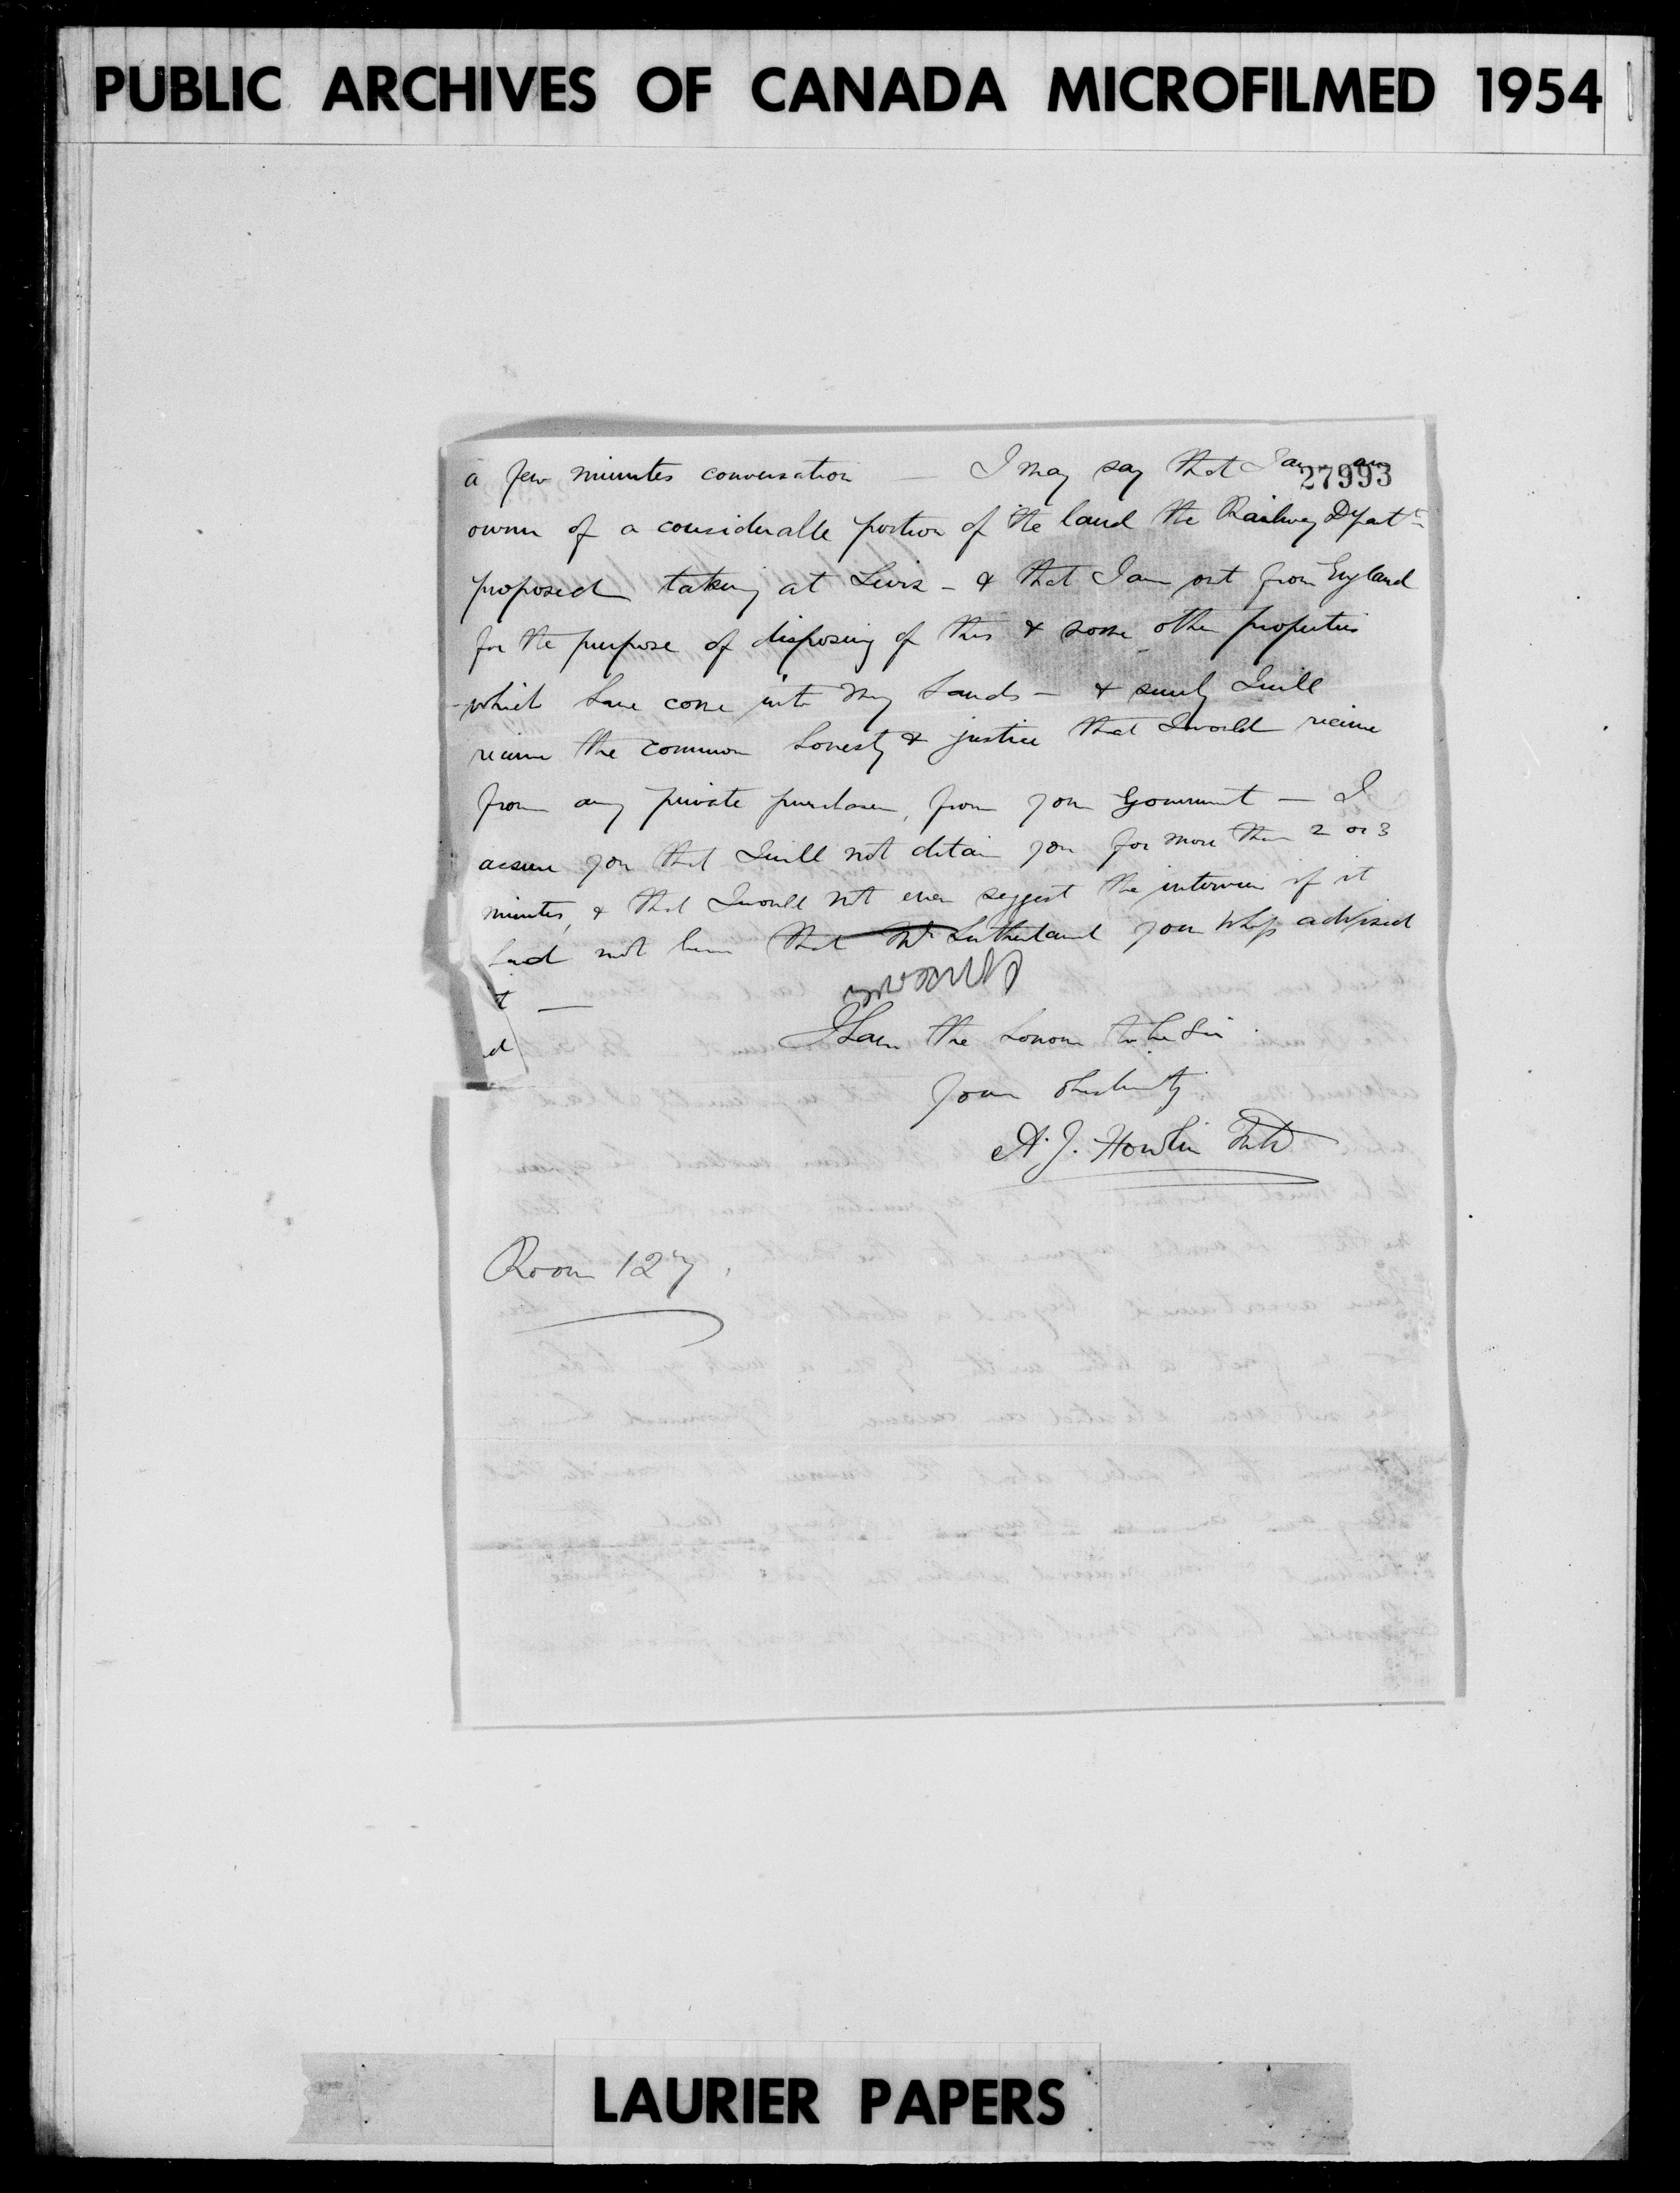 PUBLIC ARCHIVES OF CANADA MICROFILMED 1954
27993
a few minutes conversation — I may say that I am an
owner of a considerable portion of the land the Railway Depart^t
proposed taking at Levis - & that I am out from England
for the purpose of disposing of this & some other properties
which have come into my hands - & surely I will
receive the common honesty & justice that I would receive
from any private purchaser, from your Government — I
assure you that I will not detain you for more than 2 or 3
minutes, & that I would not even suggest the interview if it
had not been that Mr Sutherland your Whip advised
it —
d
I have the honour to be Sir
Your obediently
A. J. Howlin
Room 127,
LAURIER PAPERS